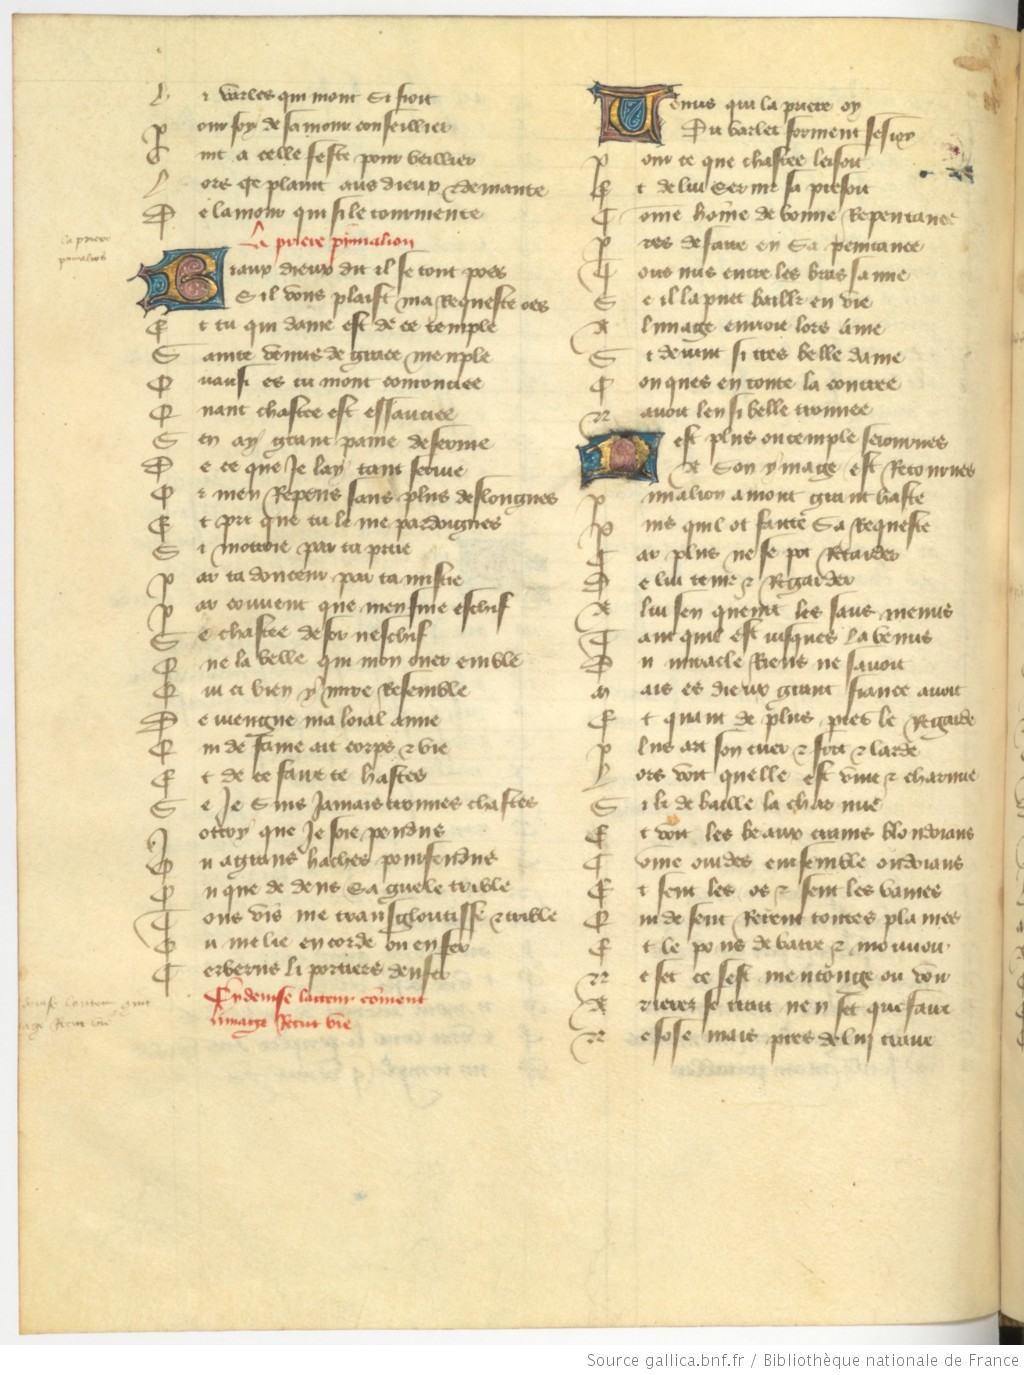 Li varles qui mont si fioit
Pour soy de samour conseillier
Vint a celle feste pour veillier
Lors se plaint aus dieux & demante
De lamour qui si le tourmente
La priere pimalion
la priere
pimalion
Biaux dieux dit il se tout poes
Sil vous plaist ma requeste oes
Et tu qui dame est de ce temple
Sainte venus de grace memple
Quausi es tu mont comonciee
Quant chastee est essauciee
Sen ay grant paine deservie
De ce que je lay tant servie
Or men repens sans plus deslongnes
Et pri que tu le me pardoignes
Si mottroie par ta pitie
Par ta doucour par ta mistie
Par couvent que men fuie eschif
Se chastee desor neschif
Que la belle qui mon cuer emble
Qui ci bien ymire resemble
De viengne ma loial amie
Qui de fame ait corps & vie
Et de ce faire te hastes
Se je suis jamais trouves chastes
Jottroy que je soie pendus
Ou a grans haches pourfendus
Ou que de dens sa guele trible
Tous vis me transgloutisse & trible
Ou me lie en corde ou en fer
Cerberus li portiers denfer
Cy devise lacteur coment
limage recut vie
Venus qui la priere oy
Du varlet forment sesioy
Pour ce que chastee lessoit
Et de lui servir sa presoit
Come home de bonne repentance
Pres de faire en sa penitance
Tous nus entre les bras sa mie
Se il la puet baillr en vie
A limage envoia lors ame
Si devint si tres belle dame
Conques en toute la contree
Navoit len si belle trouvee
Nest plus ou temple seiournes
A son ymage est retournes
Pimalion a mont grant haste
Puis quil ot faitte sa requeste
Car plus ne se pot retarder
De lui tenir & regarder
A lui sen queurt les saus menus
Tant quil est iusques la venus
Du miracle riens ne savoit
Mais es dieux grant fiance avoit
Et quant de plus pres le regarde
Plus art son cuer & frit & larde
Lors voit quelle est vive & charnue
Si li de baille la char nue
Et voit les beaux crains blondoians
Come ondes ensemble ondoians
Et sent les os & sent les vaines
Qui de sent ierent toutes plaines
Et le pous de batre & mouvoir
Ne set ce sest mentonge ou voir
Arrieres se trait ne n set que faire
Ne sose mais pres de lui traire